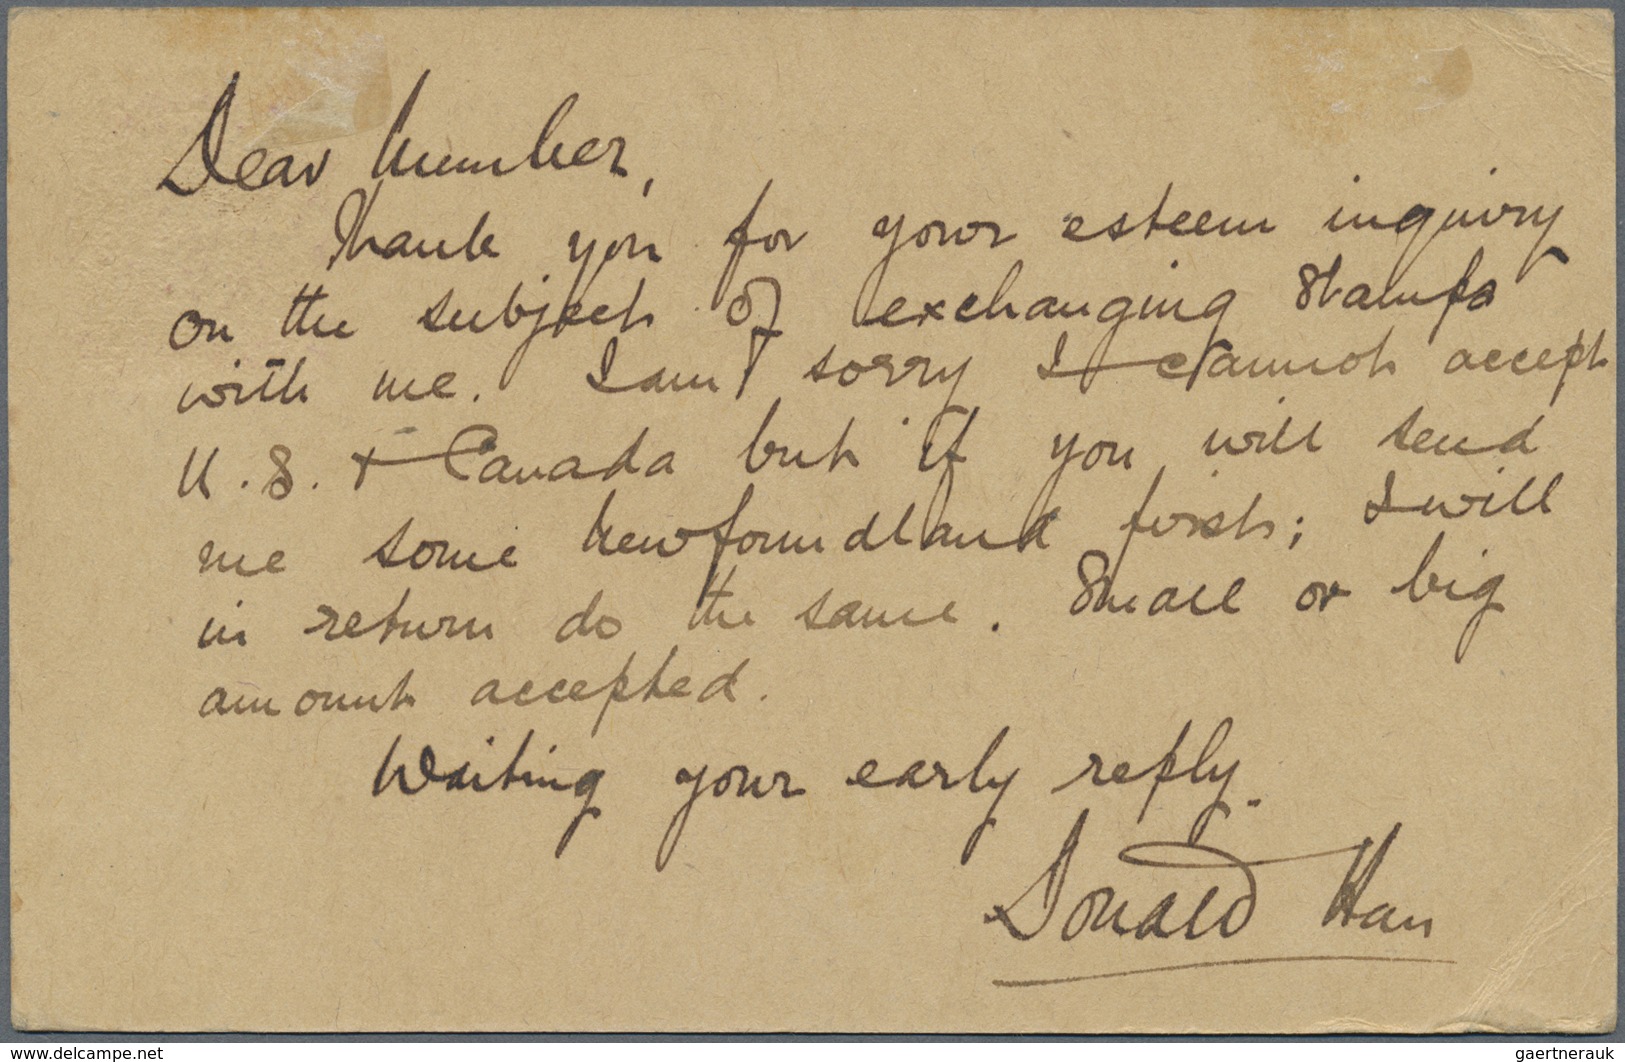 Dear Member,
Thank you for your esteem inquiry
on the subject of exchanging stamps
with me. I am sorry I cannot accept
U.S. + Canada but if you will send
me some Newfoundland first; I will
in return do the same. Small or big
amount accepted.
Waiting your early reply.
Donald Han
www.delcampe.net
gaertnerauk